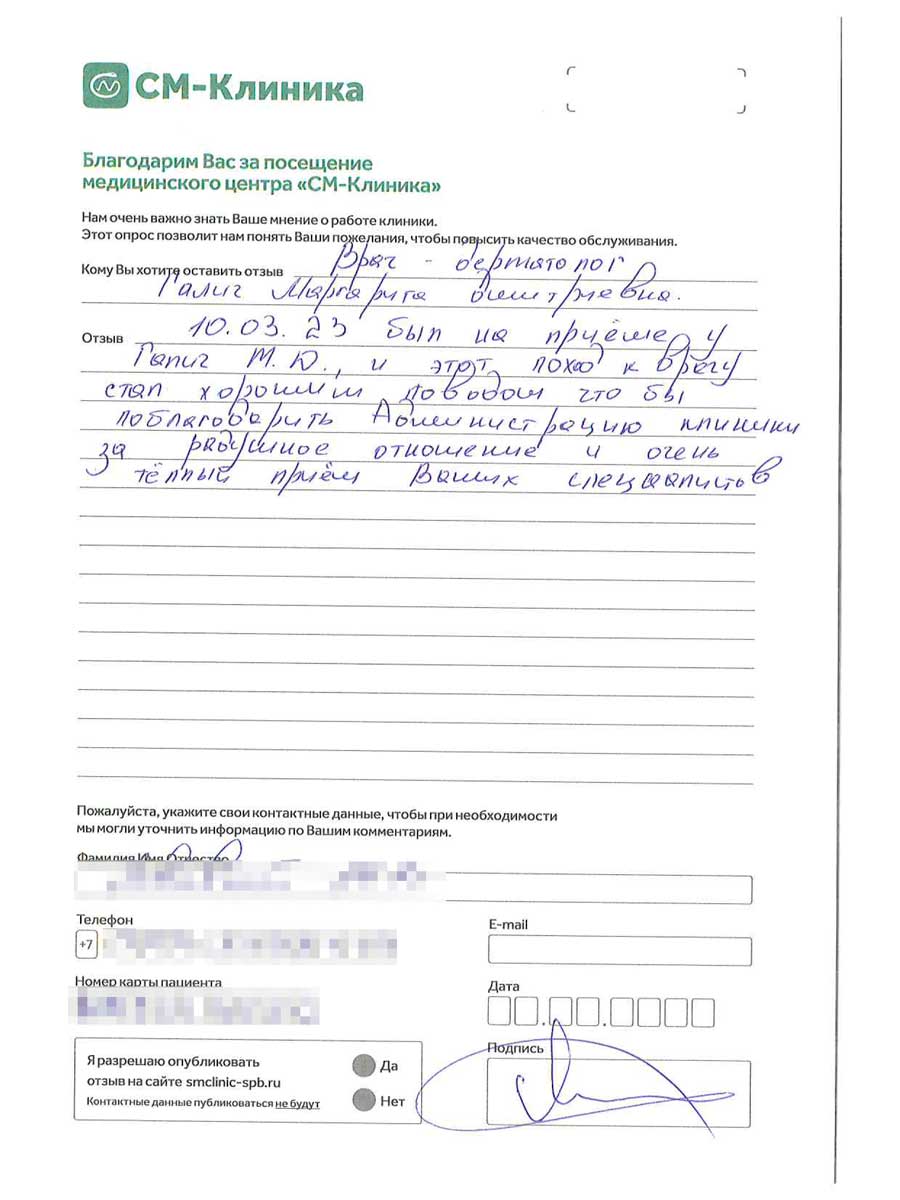 СМ-Клиника
Благодарим Вас за посещение
медицинского центра «СМ-Клиника»
Нам очень важно знать Ваше мнение о работе клиники.
Этот опрос позволит нам понять Ваши пожелания, чтобы повысить качество обслуживания.
Кому Вы хотите оставить отзыв Врач - дерматолог
Галич Маргарита Дмитриевна.
Отзыв 10.03.23 был на приёме у
Галич М.Ю., и этот поход к врачу
стал хорошим поводом что бы
поблагодарить Администрацию клиники
за радушное отношение и очень
тёплый приём Ваших специалистов
Пожалуйста, укажите свои контактные данные, чтобы при необходимости
мы могли уточнить информацию по Вашим комментариям.
Фамилия Имя Отчество
Телефон
E-mail
+7
Номер карты пациента
Дата
Я разрешаю опубликовать
отзыв на сайте smclinic-spb.ru
Контактные данные публиковаться не будут
Да
Нет
Подпись